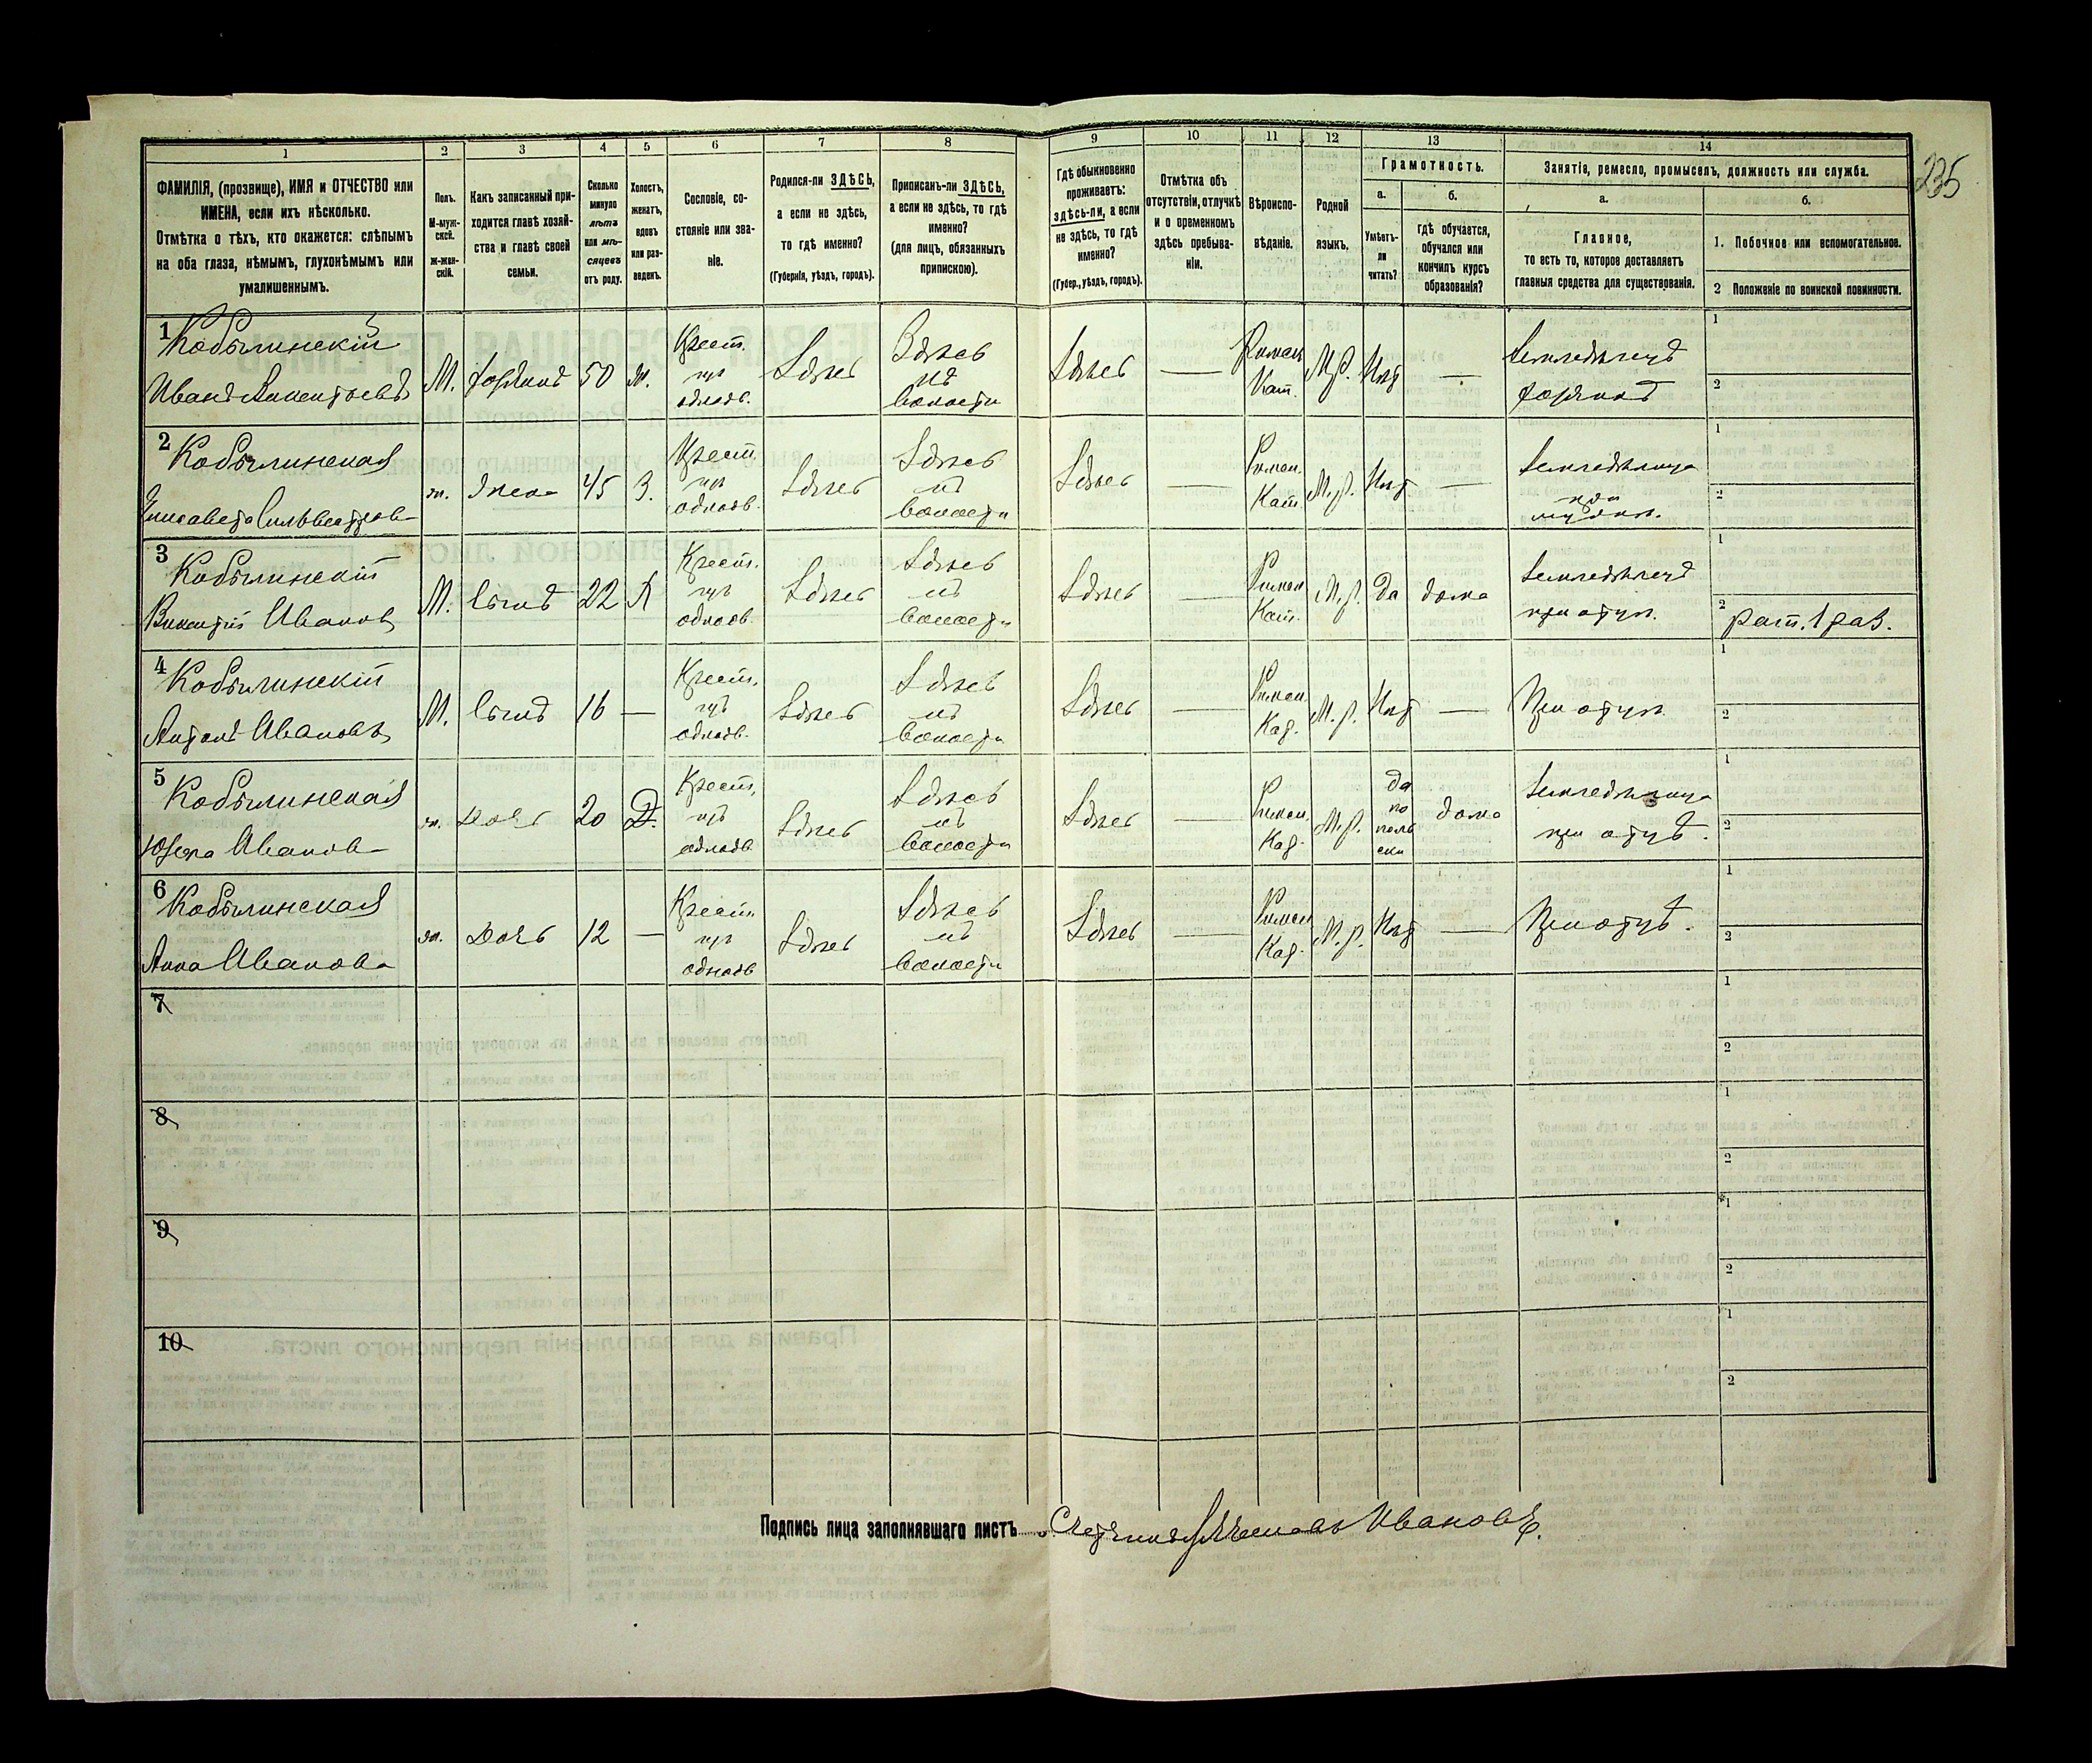 235
1 2 3 4 5 6 7 8 9 10 11 12 13 14
ФАМИЛІЯ, (прозвище), ИМЯ и ОТЧЕСТВО или
ИМЕНА, если ихъ нѣсколько.
Отмѣтка о тѣхъ, кто окажется: слѣпымъ
на оба глаза, нѣмымъ, глухонѣмымъ или
умалишеннымъ.
Полъ.
М-муж-
ской.
ж-жен-
скій.
Какъ записанный при-
ходится главѣ хозяй-
ства и главѣ своей
семьи.
Сколько
минуло
лѣтъ
или мѣ-
сяцевъ
отъ роду.
Холостъ,
женатъ,
вдовъ
или раз-
веденъ.
Сословіе, со-
стояніе или зва-
ніе.
Родился-ли ЗДѢСЬ,
а если не здѣсь,
то гдѣ именно?
(Губернія, уѣздъ, городъ).
Приписанъ-ли ЗДѢСЬ,
а если не здѣсь, то гдѣ
именно?
(для лицъ, обязанныхъ
припискою).
Гдѣ обыкновенно
проживаетъ:
здѣсь-ли, а если
не здѣсь, то гдѣ
именно?
(Губер., уѣздъ, городъ).
Отмѣтка объ
отсутствіи, отлучкѣ
и о временномъ
здѣсь пребыва-
ніи.
Вѣроиспо-
вѣданіе.
Родной
языкъ.
Грамотность.
а.
Умѣетъ-
ли
читать?
б.
гдѣ обучается,
обучался или
кончилъ курсъ
образованія?
Занятіе, ремесло, промыселъ, должность или служба.
а.
Главное,
то есть то, которое доставляетъ
главныя средства для существованія.
б.
1. Побочное или вспомогательное.
2 Положеніе по воинской повинности.
1 Кобылинскій
Иванъ Викентьевъ
М.
хозяинъ
50
ж.
Крест.
изъ
однодв.
Здѣсь
Здѣсь
въ
волости
Здѣсь
—
Римск
Кат.
М.р.
Нѣт
—
Земледѣлецъ
хозяинъ
1
2
2 Кобылинская
Елисавета Сильвестров
ж.
Жена
45
З.
Крест.
изъ
однодв.
Здѣсь
Здѣсь
въ
волости
Здѣсь
—
Римск.
Кат.
М.р.
Нѣт
—
Земледѣлица
при
мужѣ.
1
2
3 Кобылинскій
Викентій Иванов
М.
Сынъ
22
Х
Крест.
изъ
однодв.
Здѣсь
Здѣсь
въ
волости
Здѣсь
—
Римск
Кат.
М.р.
да
дома
Земледѣлецъ
при отцѣ.
1
2 рат. 1 раз.
4 Кобылинскій
Антонъ Ивановъ
М.
Сынъ
16
—
Крест.
изъ
однодв.
Здѣсь
Здѣсь
въ
волости
Здѣсь
—
Римск.
Кат.
М.р.
Нѣт
—
При отцѣ
1
2
5 Кобылинская
Юзефа Иванов
ж.
Дочь
20
Д.
Крест.
изъ
однодв.
Здѣсь
Здѣсь
въ
волости
Здѣсь
—
Римск.
Кат.
М.р.
да
по
поль
ски
дома
Земледѣлица
при отцѣ.
1
2
6 Кобылинская
Анна Иванова
ж.
Дочь
12
—
Крест.
изъ
однодв
Здѣсь
Здѣсь
въ
волости
Здѣсь
—
Римск
Кат.
М.р.
Нѣт
—
При отцѣ.
1
2
7
1
2
8
1
2
9
1
2
10
1
2
Подпись лица заполнявшаго листъ